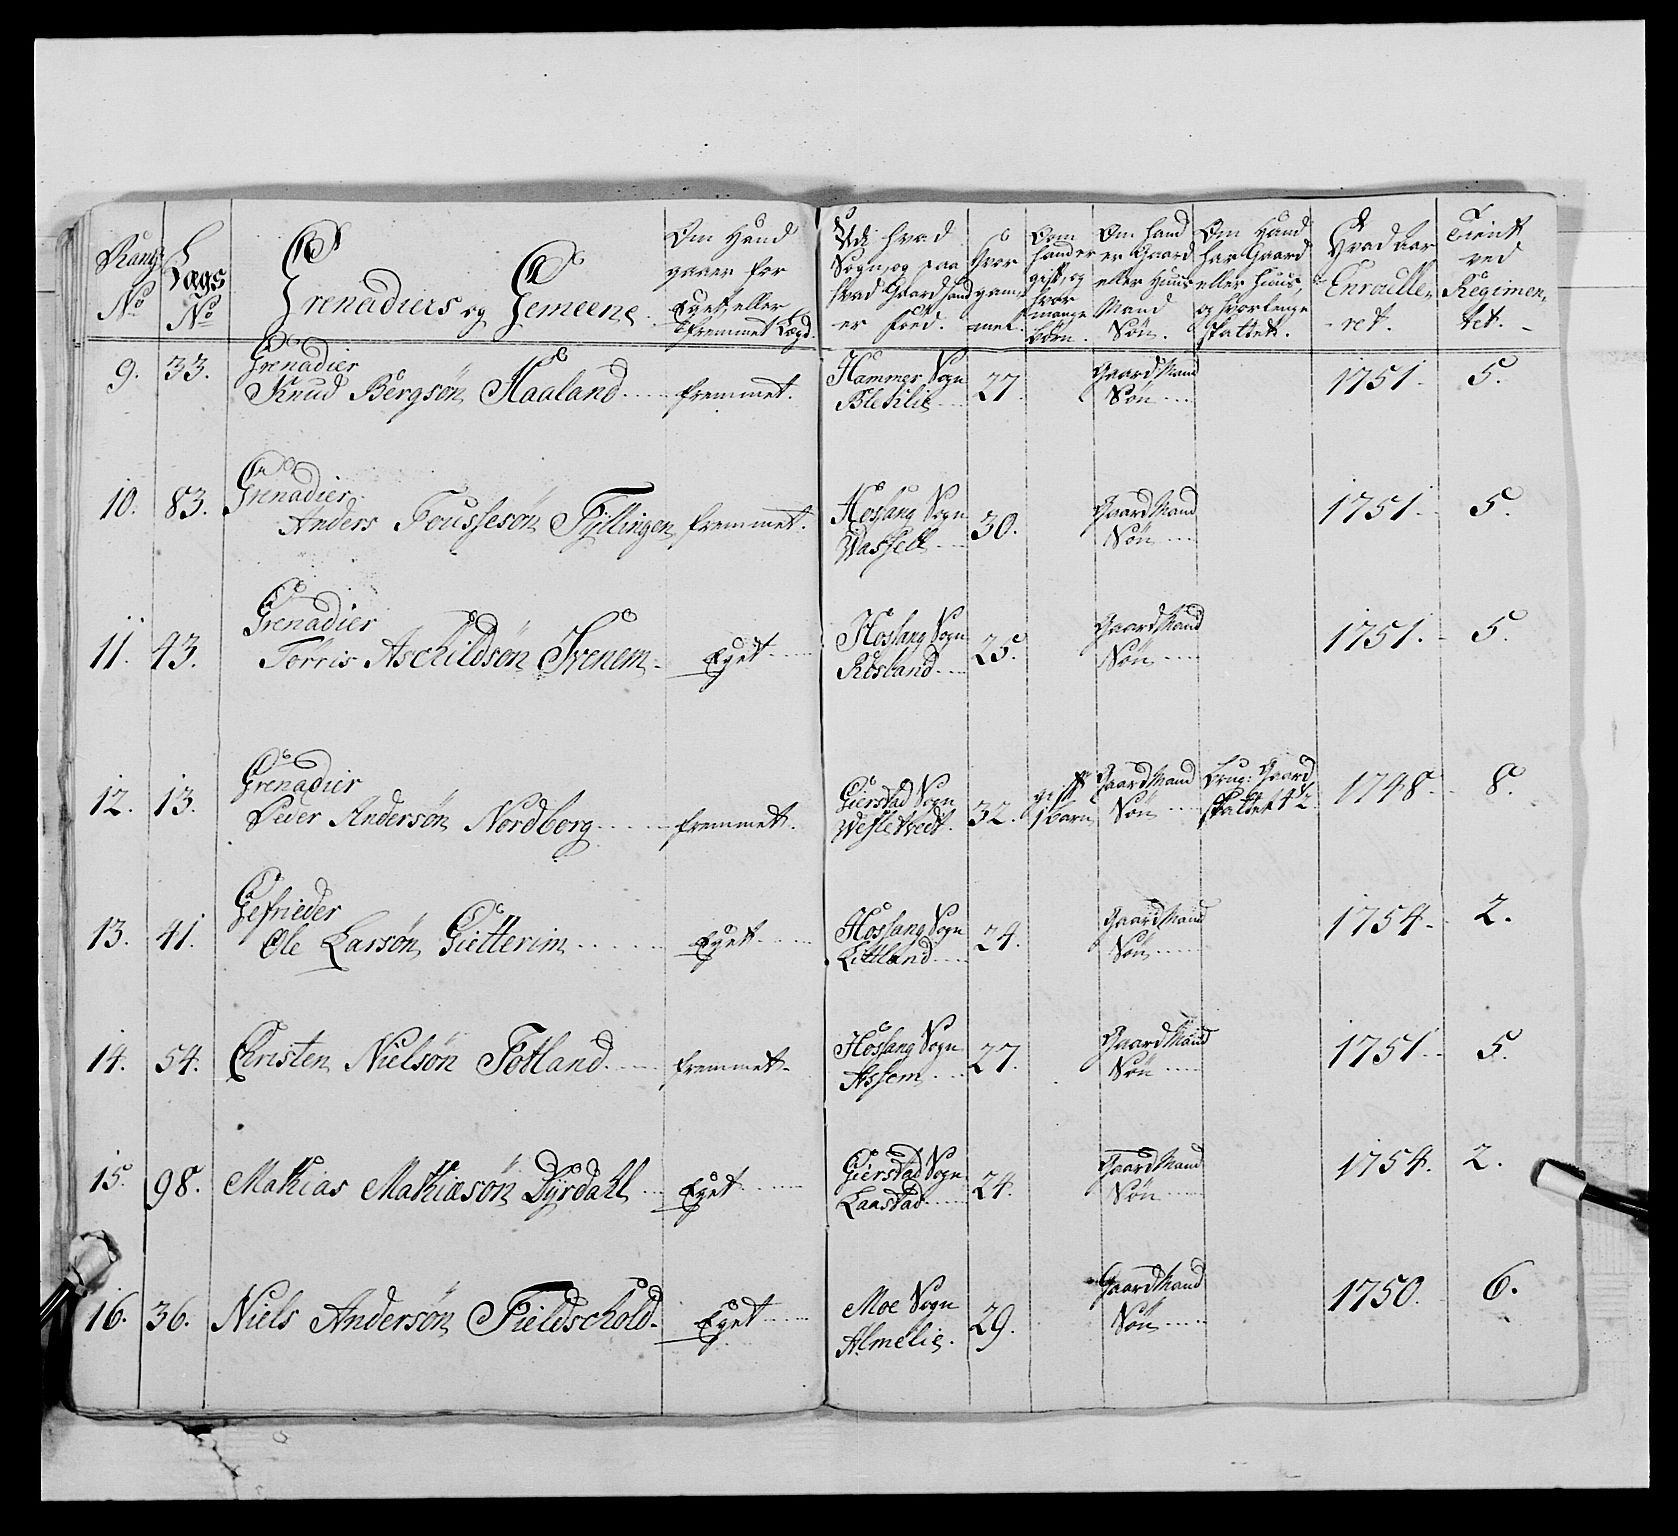 Rang No | Lægs No | Grenadiers og Gemeene. | Om Hand gaaer for Eget, eller fremmet Lægd. | Udj hvad Sogn, og paa hvad Gaard hand er föed. | hvor gam- mel. | Om hand er gift, og hvor mange börn. | Om hand er Gaard eller Huus Mand Sön. | Om Hand har Gaard eller Huus, og hvorlenge skattet. | Hvad aar Enroulle- ret. | Tient ved Regimen- tet.
9. 33. Grenadier
Knud Bergsön Haaland fremmet. Hammer Sogn Bletilie 27. Gaard Mand Sön 1751. 5.
10. 83. Grenadier
Anders Foussesön Fyllingen fremmet. Hosang Sogn Wassell 30. Gaard Mand Sön 1751. 5.
11. 43. Grenadier
Törris Aschildsön Ivenem Eget Hosang Sogn Röstand 25. Gaard Mand Sön 1751. 5.
12. 13. Grenadier
Peder Andersön Nordborg fremmet. Gierstad Sogn Westetvedt. 32. gift 1 barn Gaard Mand Sön brug: Gaard skattet 4 1/2 1748. 8.
13. 41. Gefrieder
Ole Larsön Gietterim Eget Hosang Sogn Littland 24. Gaard Mand Sön 1754. 2.
14. 54. Christen Nielsön Totland fremmet. Hosang Sogn Assem 27. Gaard Mand Sön 1751. 5.
15. 98. Mathias Mathiasön Dyrdahl Eget Gierstad Sogn Laastad 24. Gaard Mand Sön 1754. 2.
16. 36. Niels Andersön Fieldschold Eget Moe Sogn Almelie. 29. Gaard Mand Sön 1750. 6.